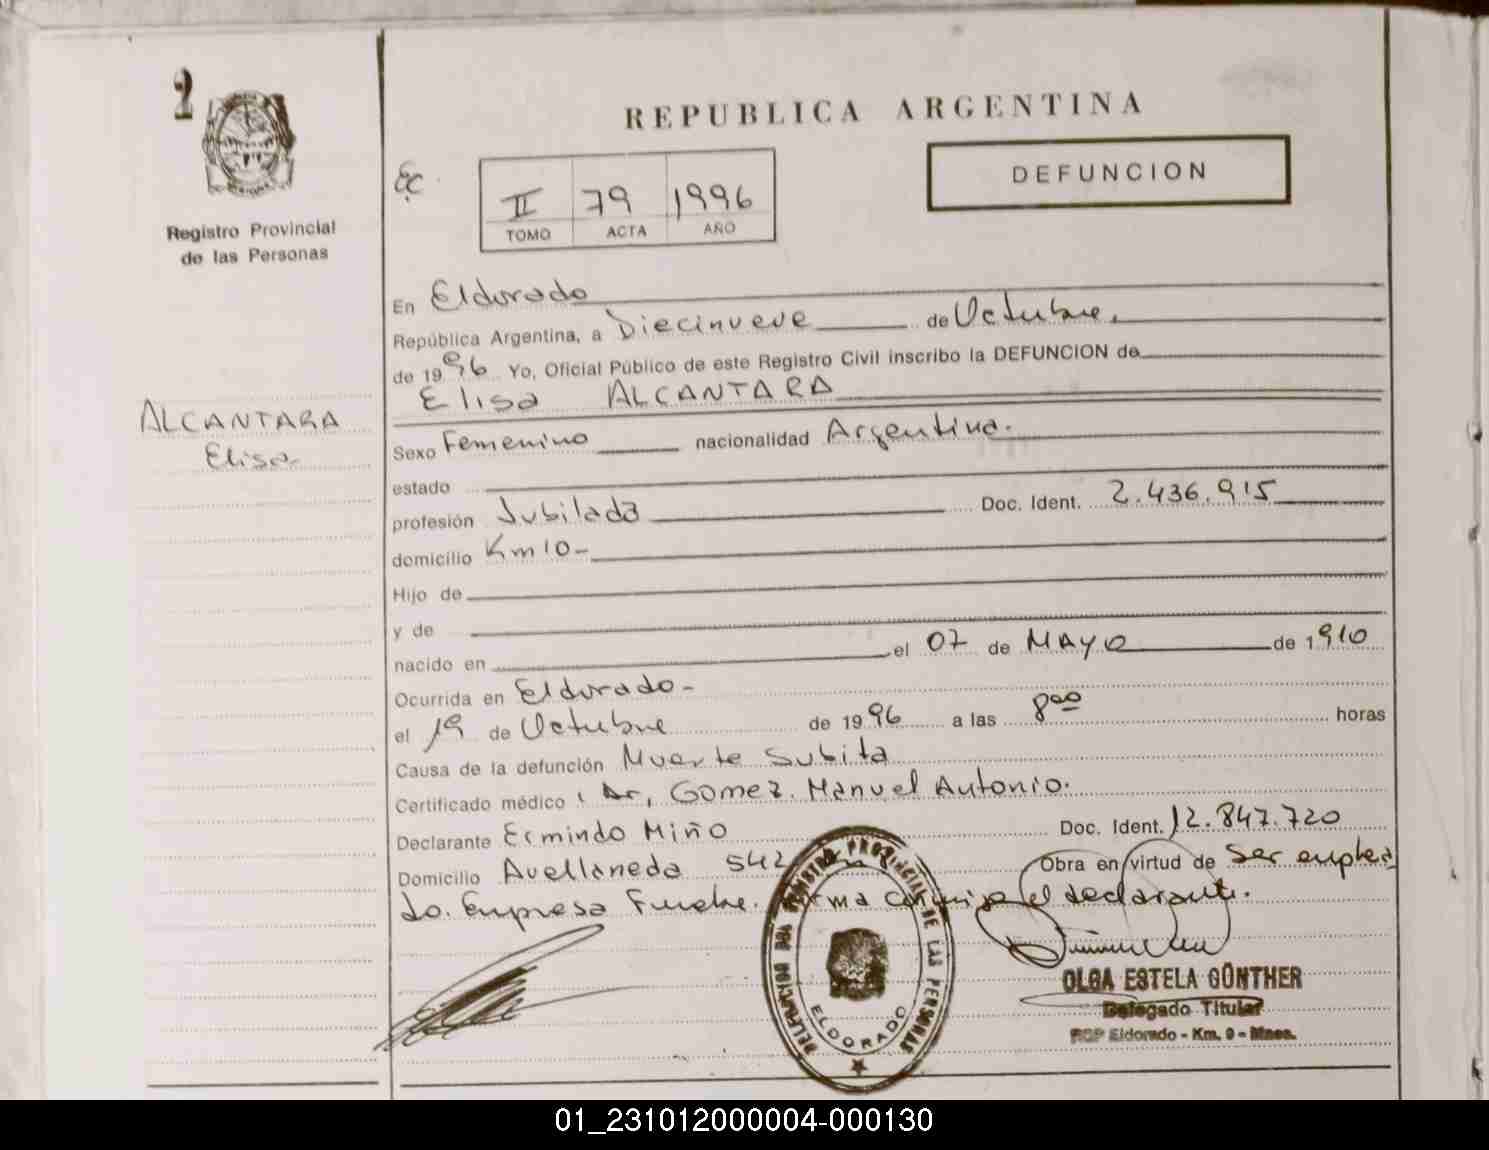 2
Registro Provincial
de las Personas
REPUBLICA ARGENTINA
DEFUNCION
II 79 1996
TOMO ACTA AÑO
ALCANTARA
Elisa
En Eldorado
República Argentina, a Diecinueve de Octubre.
de 1996 Yo, Oficial Público de este Registro Civil inscribo la DEFUNCION de
Elisa ALCANTARA
Sexo Femenino nacionalidad Argentina.
estado
profesión Jubilada Doc. Ident. 2.436.915
domicilio Km 10-
Hijo de
y de
nacido en el 07 de MAYO de 1910
Ocurrida en Eldorado-
el 19 de Octubre de 1996 a las 8⁰⁰ horas
Causa de la defunción Muerte Subita
Certificado médico Dr, Gomez. Manuel Antonio.
Declarante Ermindo Miño Doc. Ident. 12.847.720
Domicilio Avellaneda 542 Obra en virtud de Ser emplea
do. Empresa Funebre. el declarante.
DELEGACION DEL REGISTRO PROVINCIAL DE LAS PERSONAS
ELDORADO
OLGA ESTELA GÜNTHER
Delegado Titular
RCP Eldorado - Km. 9 - Mnes.
01_231012000004-000130